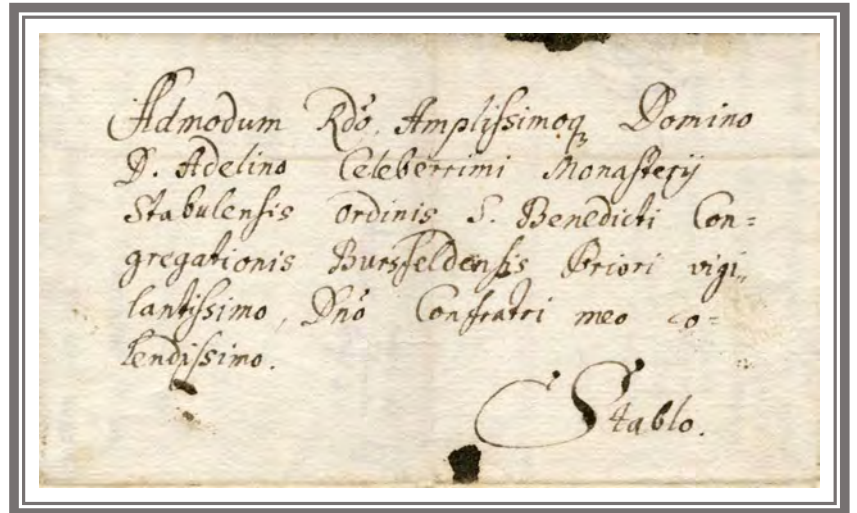 Admodum Rdõ. Amplissimoq₃ Domino
D. Adelino Celeberrimi Monasterij
Stabulensis Ordinis S. Benedicti Con=
gregationis Bursfeldensis Priori vigi„
lantissimo, Dnõ Confratri meo co=
lendissimo.
Stablo.